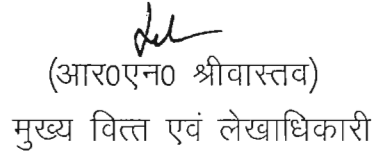 (आर0एन0 श्रीवास्तव)
मुख्य वित्त एवं लेखाधिकारी